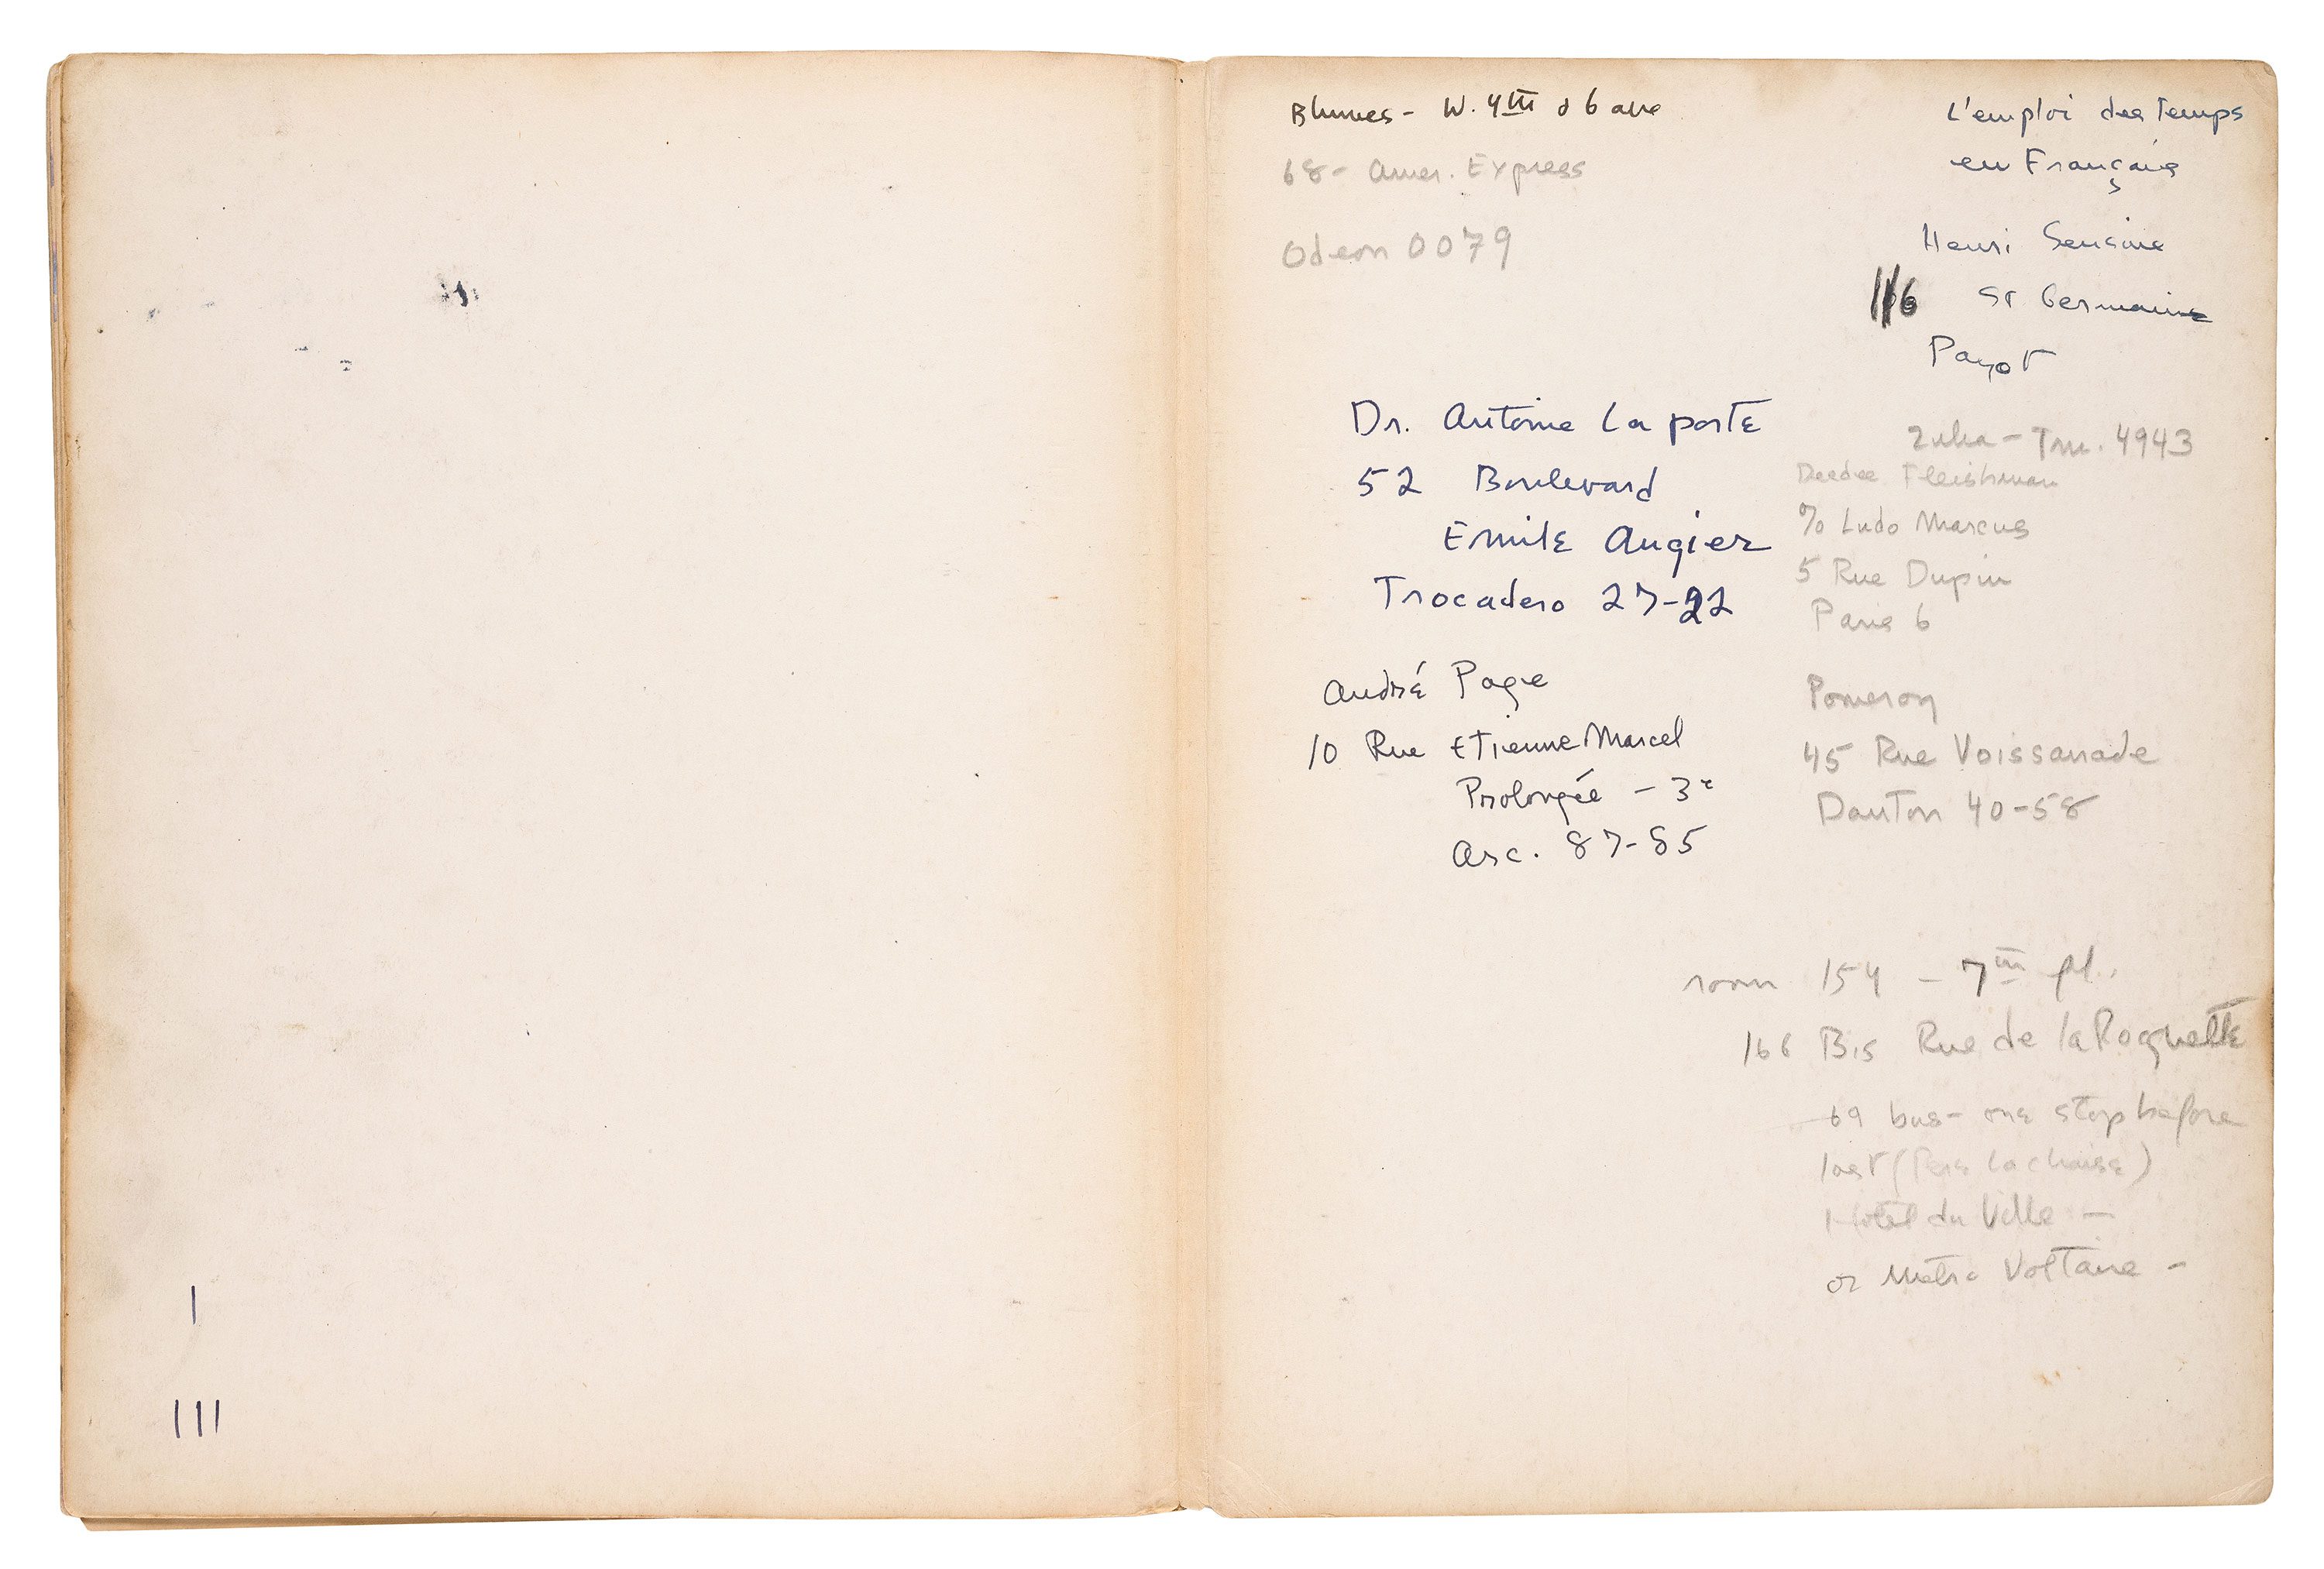 Blumes - W. 4th & 6 ave
68 - Amer. Express
Odeon 0079
L'emploi des Temps
en Français
Henri Sensine
116 St Germain
Payot
Dr. Antoine La porte
52 Boulevard
Emile Augier
Trocadero 27-22
- Tru. 4943
Deedee Fleishman
c/o Ludo Marcus
5 Rue Dupin
Paris 6
André Page
10 Rue Etienne Marcel
Prolongée - 3e
Arc. 87-85
Pomeroy
45 Rue Voissanade
Danton 40-58
room 154 - 7th fl.
166 Bis Rue de la Roquette
69 bus - one stop before
last (Pere Lachaise)
Hotel du Ville -
or Metro Voltaire -
I
III